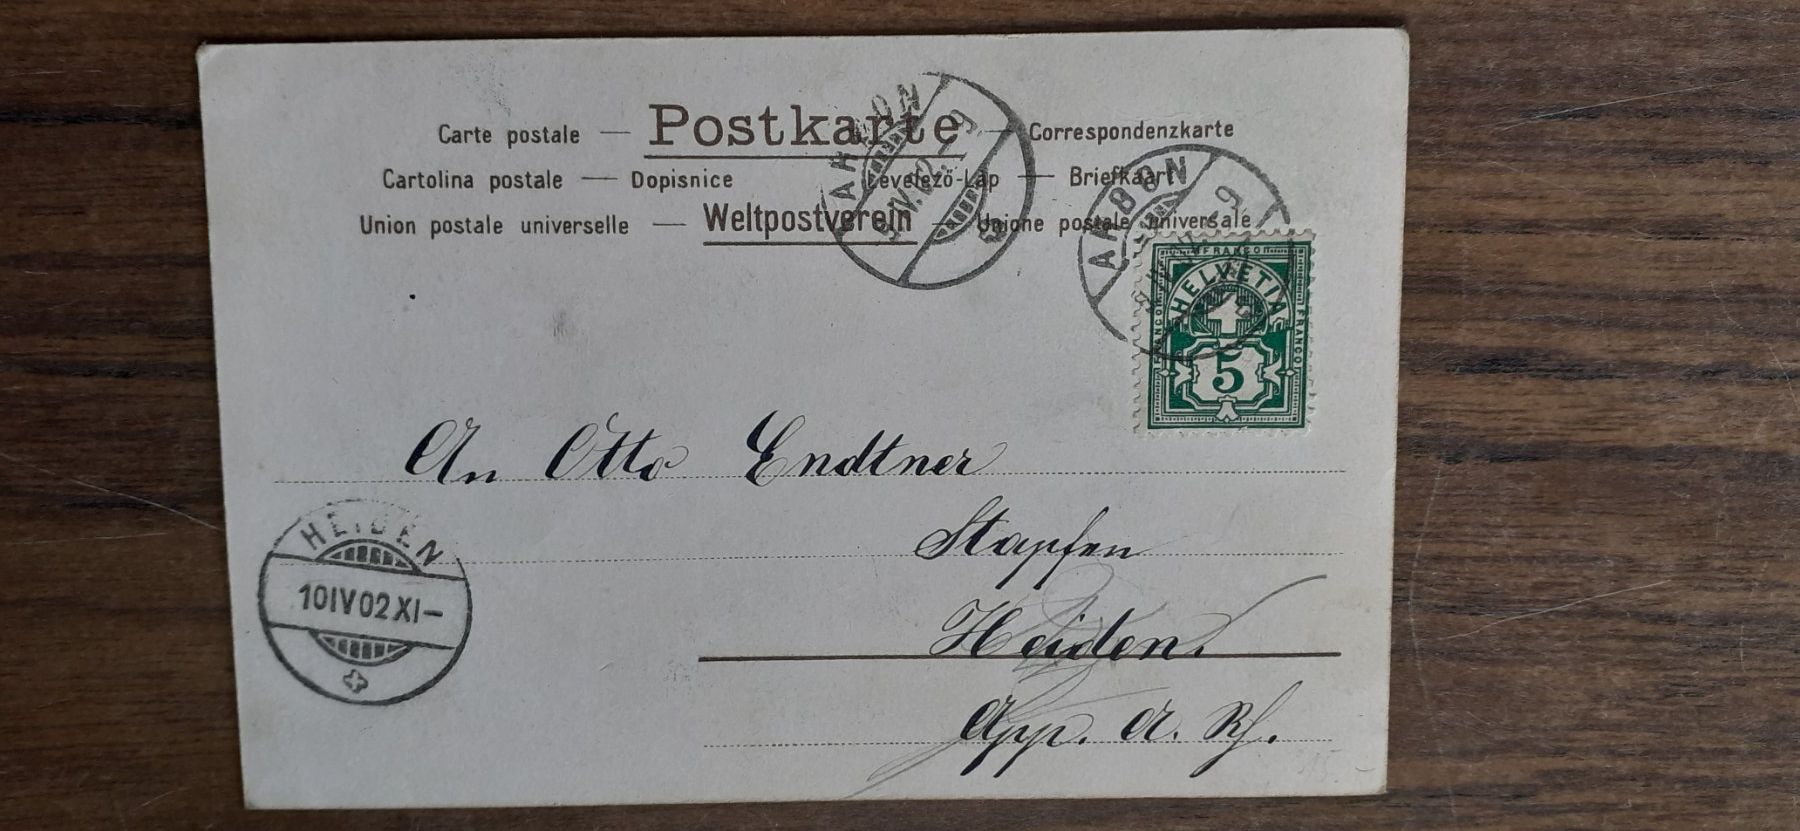 Carte postale — Postkarte — Correspondenzkarte
Cartolina postale — Dopisnice — Levelező-Lap — Briefkaart
Union postale universelle — Weltpostverein — Unione postale universale
ARBON
IV.02.-9
ARBON
-9
FRANCO
HELVETIA
FRANCO
FRANCO
5
An Otto Endtner
Stapfen
HEIDEN
10IV02XI-
Heiden.
App. A. Rh.